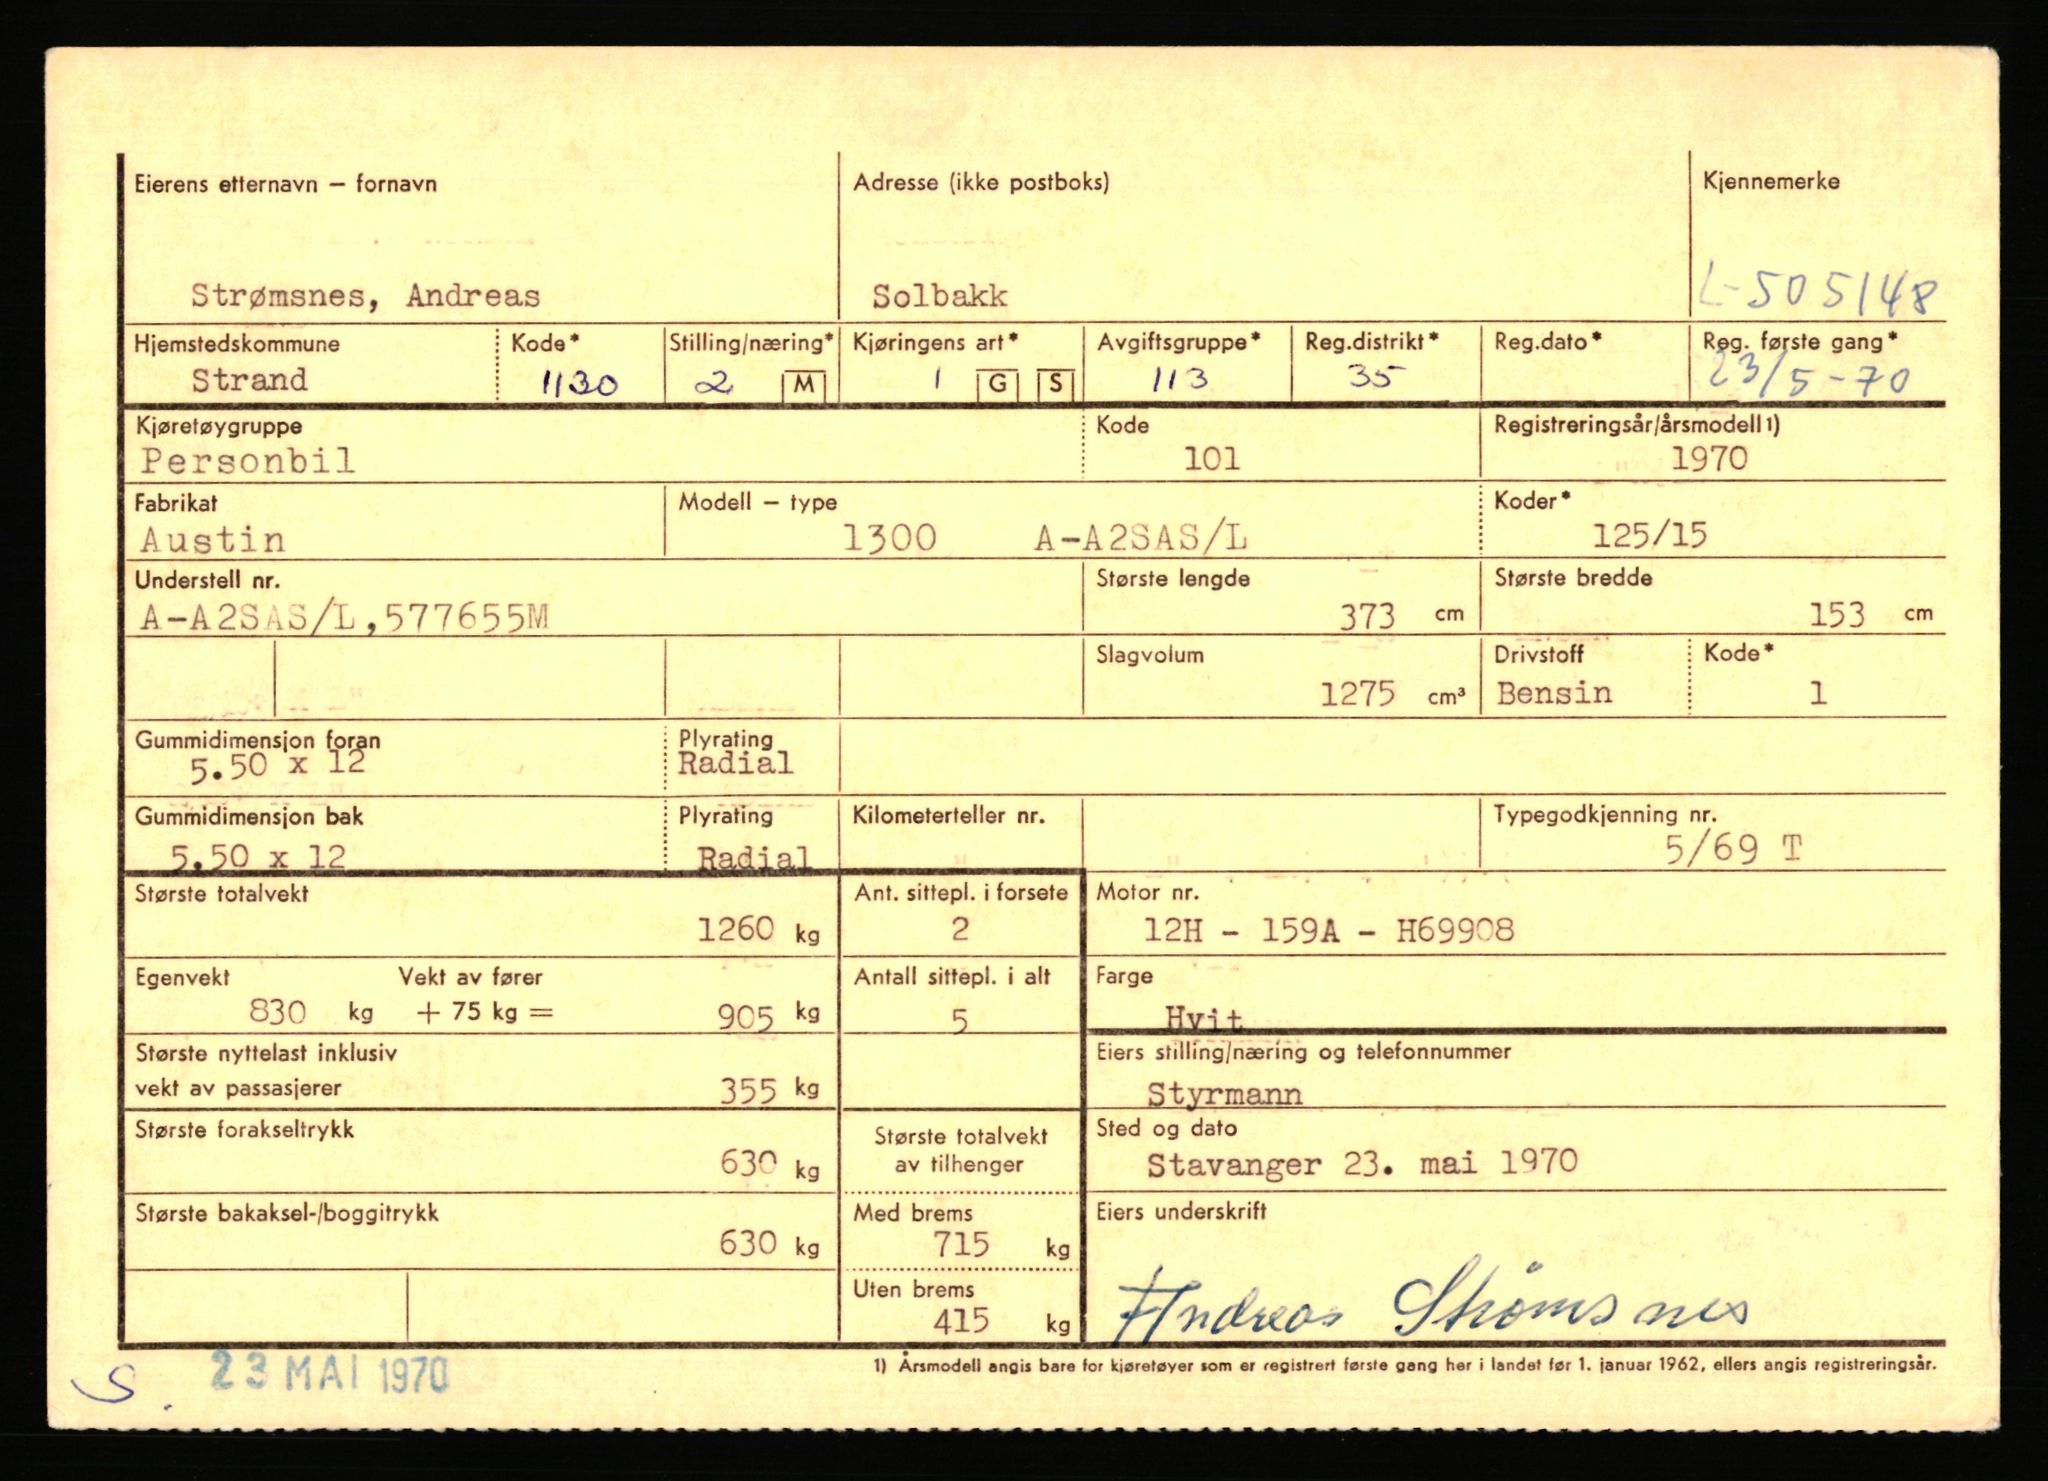 Eierens etternavn – fornavn
Adresse (ikke postboks)
Kjennemerke
Strømsnes, Andreas
Solbakk
L-505148
Hjemstedskommune
Kode*
Stilling/næring*
Kjøringens art*
Avgiftsgruppe*
Reg.distrikt*
Reg.dato*
Reg. første gang*
Strand
1130
2 M
1 G S
113
35
23/5-70
Kjøretøygruppe
Kode
Registreringsår/årsmodell1)
Personbil
101
1970
Fabrikat
Modell – type
Koder*
Austin
1300 A-A2SAS/L
125/15
Understell nr.
Største lengde
Største bredde
A-A2SAS/L,577655M
373 cm
153 cm
Slagvolum
Drivstoff
Kode*
1275 cm³
Bensin
1
Gummidimensjon foran
Plyrating
5.50 x 12
Radial
Gummidimensjon bak
Plyrating
Kilometerteller nr.
Typegodkjenning nr.
5.50 x 12
Radial
5/69 T
Største totalvekt
Ant. sittepl. i forsete
Motor nr.
1260 kg
2
12H - 159A - H69908
Egenvekt
Vekt av fører
Antall sittepl. i alt
Farge
830 kg + 75 kg = 905 kg
5
Hvit
Største nyttelast inklusiv
vekt av passasjerer
355 kg
Eiers stilling/næring og telefonnummer
Styrmann
Største forakseltrykk
630 kg
Største totalvekt
av tilhenger
Sted og dato
Stavanger 23. mai 1970
Største bakaksel-/boggitrykk
630 kg
Med brems
715 kg
Eiers underskrift
Uten brems
415 kg
Andreas Strømsnes
1) Årsmodell angis bare for kjøretøyer som er registrert første gang her i landet før 1. januar 1962, ellers angis registreringsår.
S.
23 MAI 1970